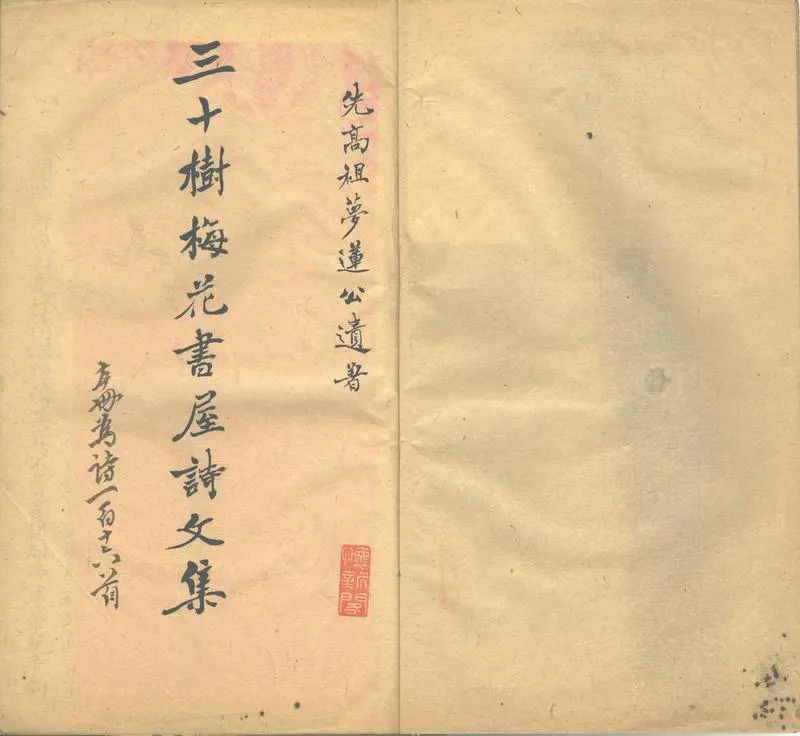 先高祖夢蓮公遺著
三十樹梅花書屋詩文集
左冊為詩一百十六首